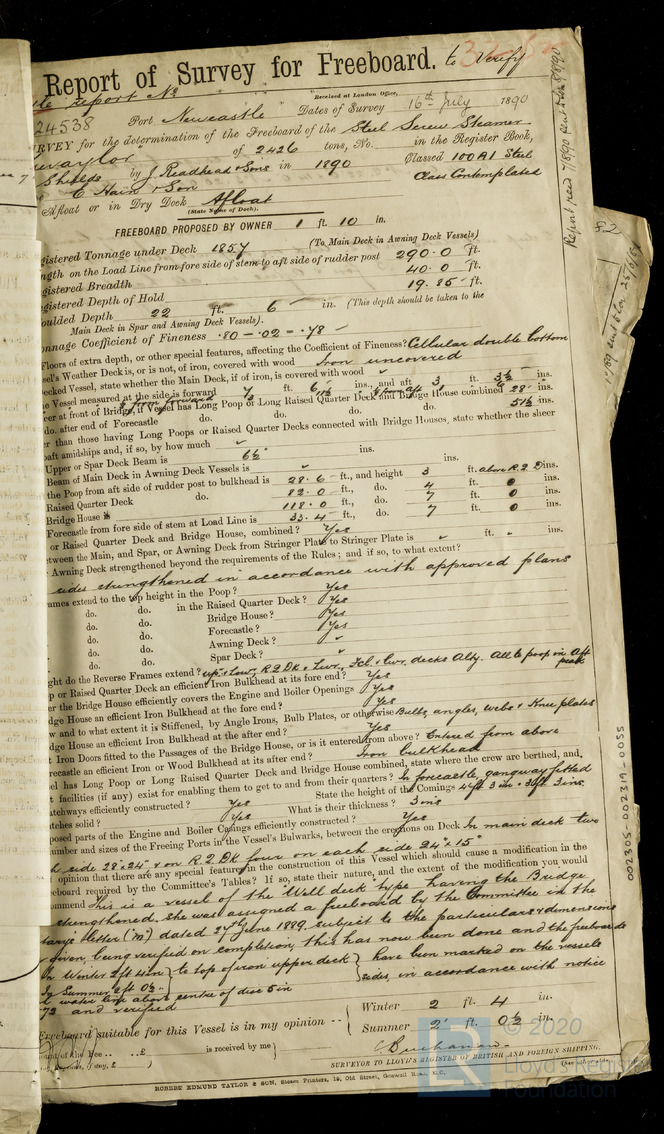 Report of Survey for Freeboard. to Verify
Report No
Received at London Office,
24538 Port Newcastle Dates of Survey 16th July 1890
for the determination of the Freeboard of the Steel Screw Steamer
of 2426 tons, No. in the Register Book,
Shields by J Readhead & Sons in 1890 Classed 100A1 Steel
E Hain & Son Class Contemplated
Afloat or in Dry Dock Afloat
(State Name of Dock).
FREEBOARD PROPOSED BY OWNER 1 ft. 10 in.
gistered Tonnage under Deck 1857 (To Main Deck in Awning Deck Vessels)
ngth on the Load Line from fore side of stem to aft side of rudder post 290.0 ft.
gistered Breadth 40.0 ft.
gistered Depth of Hold 19.85 ft.
oulded Depth 22 ft. 6 in. (This depth should be taken to the
Main Deck in Spar and Awning Deck Vessels).
onnage Coefficient of Fineness .80 - .02 = .78
Floors of extra depth, or other special features, affecting the Coefficient of Fineness? Cellular double bottom
sel's Weather Deck is, or is not, of iron, covered with wood Iron uncovered
ecked Vessel, state whether the Main Deck, if of iron, is covered with wood
he Vessel measured at the side is forward 7 ft. 6 ins., and aft 3 ft. 3½ ins.
eer at front of Bridge, if Vessel has Long Poop or Long Raised Quarter Deck and Bridge House combined 28 ins.
do. after end of Forecastle do. do. do. do. 51½ ins.
er than those having Long Poops or Raised Quarter Decks connected with Bridge Houses, state whether the sheer
baft amidships and, if so, by how much ins.
Upper or Spar Deck Beam is 6½ ins.
Beam of Main Deck in Awning Deck Vessels is ins.
the Poop from aft side of rudder post to bulkhead is 28.6 ft., and height 3 ft. above R 2 D ins.
Raised Quarter Deck do. 82.0 ft., do. 4 ft. 0 ins.
Bridge House is 118.0 ft., do. 7 ft. 0 ins.
Forecastle from fore side of stem at Load Line is 33.4 ft., do. 7 ft. 0 ins.
or Raised Quarter Deck and Bridge House, combined? Yes
etween the Main, and Spar, or Awning Deck from Stringer Plate to Stringer Plate is ft. ins.
Awning Deck strengthened beyond the requirements of the Rules; and if so, to what extent?
sides strengthened in accordance with approved plans
rames extend to the top height in the Poop? Yes
do. do. in the Raised Quarter Deck? Yes
do. do. Bridge House? Yes
do. do. Forecastle? Yes
do. do. Awning Deck?
do. do. Spar Deck?
ght do the Reverse Frames extend? up. & Lowr, R 2 Dk & Lwr, Fcl & Lwr. decks Altg. All to poop in Aft peak
p or Raised Quarter Deck an efficient Iron Bulkhead at its fore end? Yes
er the Bridge House efficiently covers the Engine and Boiler Openings Yes
dge House an efficient Iron Bulkhead at the fore end? Yes
w and to what extent it is Stiffened, by Angle Irons, Bulb Plates, or otherwise Bulb, angles, webs & Knee plates
dge House an efficient Iron Bulkhead at the after end? Yes
t Iron Doors fitted to the Passages of the Bridge House, or is it entered from above? Entered from above
recastle an efficient Iron or Wood Bulkhead at its after end? Iron bulkhead
el has Long Poop or Long Raised Quarter Deck and Bridge House combined, state where the crew are berthed, and,
t facilities (if any) exist for enabling them to get to and from their quarters? In forecastle, gangway fitted
atchways efficiently constructed? Yes State the height of the Comings 4ft 3in & 3ft 3ins
tches solid? Yes What is their thickness? 3 ins
posed parts of the Engine and Boiler Casings efficiently constructed? Yes
umber and sizes of the Freeing Ports in the Vessel's Bulwarks, between the erections on Deck In main deck two
h side 28"x24" & on R.2 Dk four on each side 24" x 15"
opinion that there are any special features in the construction of this Vessel which should cause a modification in the
eeboard required by the Committee's Tables? If so, state their nature, and the extent of the modification you would
ommend This is a vessel of the "Well deck" type having the Bridge
strengthened, she was assigned a freeboard by the Committee in the
tary's letter ("M") dated 27th June 1889 subject to the particulars & dimensions
given, being verified on completion, this has now been done and the freeboards
In Winter 2ft 4in } to top of iron upper deck } have been marked on the vessels
In Summer 2ft 0½ } sides, in accordance with notice
water line above centre of disc 5 in
and verified
Freeboard suitable for this Vessel is in my opinion { Winter 2 ft. 4 in.
Summer 2 ft. 0½ in.
ount of the Fee .. .. £ is received by me
Buchanan
SURVEYOR TO LLOYD'S REGISTER OF BRITISH AND FOREIGN SHIPPING.
ROBERT EDMUND TAYLOR & SON, Steam Printers, 19, Old Street, Goswell Road, E.C.
002305-002319-0055
© 2020
Lloyd's Register
Foundation